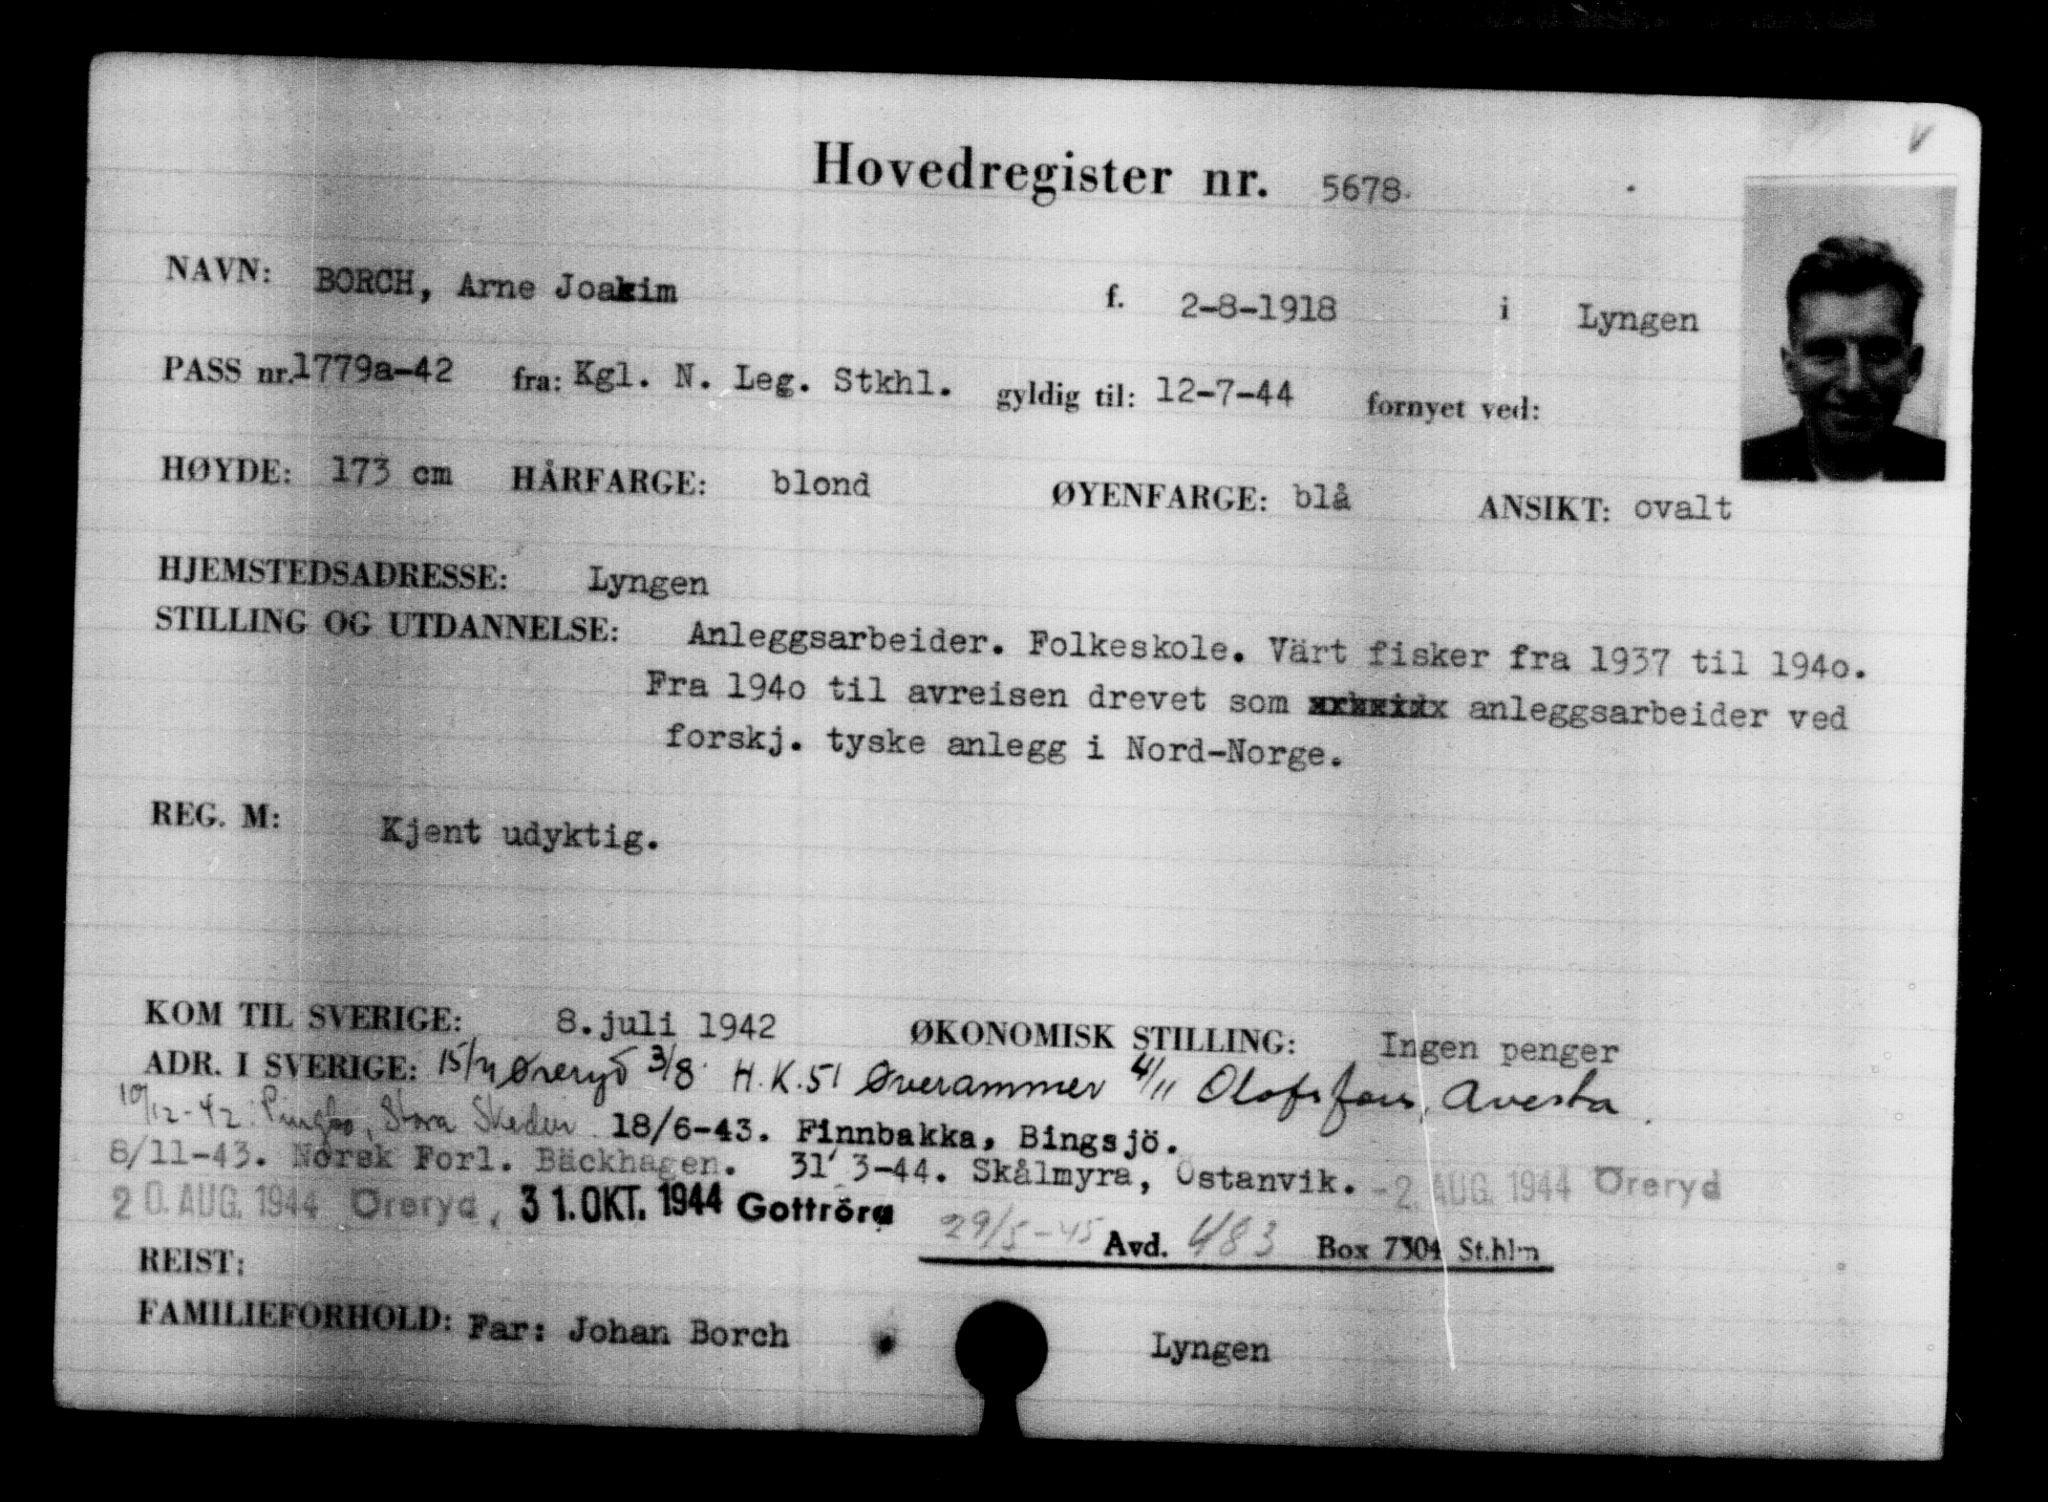 Hovedregister nr. 5678.
NAVN: BORCH, Arne Joakim f. 2-8-1918 i Lyngen
PASS nr. 1779a-42 fra: Kgl. N. Leg. Stkhl. gyldig til: 12-7-44 fornyet ved:
HØYDE: 173 cm HÅRFARGE: blond ØYENFARGE: blå ANSIKT: ovalt
HJEMSTEDSADRESSE: Lyngen
STILLING OG UTDANNELSE: Anleggsarbeider. Folkeskole. Värt fisker fra 1937 til 194o.
Fra 194o til avreisen drevet som anleggsarbeider ved
forskj. tyske anlegg i Nord-Norge.
REG. M: Kjent udyktig.
KOM TIL SVERIGE: 8.juli 1942 ØKONOMISK STILLING: Ingen penger
ADR. I SVERIGE: 15/7 Øreryd 3/8 H.K.51 Øverammer 4/11 Olofsfors, Avesta.
10/12-42: Pingbo, Stora Skedvi 18/6-43. Finnbakka, Bingsjö.
8/11-43. Norsk Forl. Bäckhagen. 31/3-44. Skålmyra, Östanvik. -2. AUG. 1944 Öreryd
20. AUG. 1944 Öreryd, 31. OKT. 1944 Gottröra
29/5-45 Avd. 483 Box 7304 St.hlm
REIST:
FAMILIEFORHOLD: Far: Johan Borch Lyngen